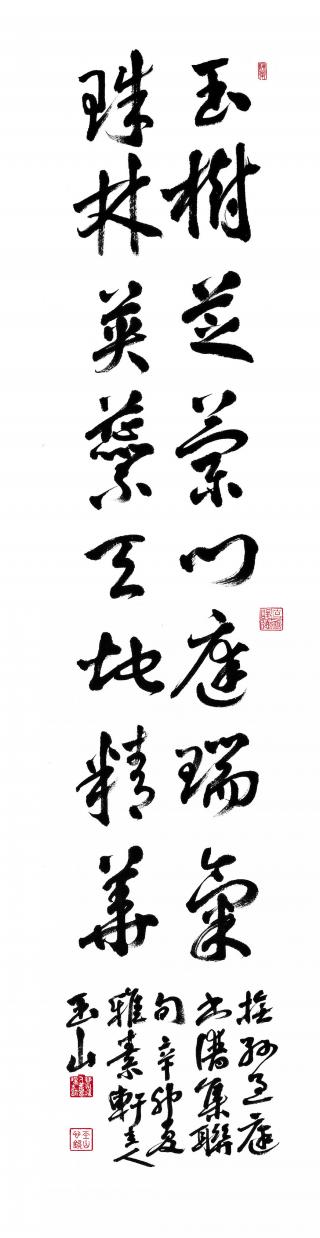 玉樹芝蘭門庭瑞氣
珠林英蘂天地精華
撫孫過庭
書譜集聯
句辛卯夏
雅素軒主人
玉山